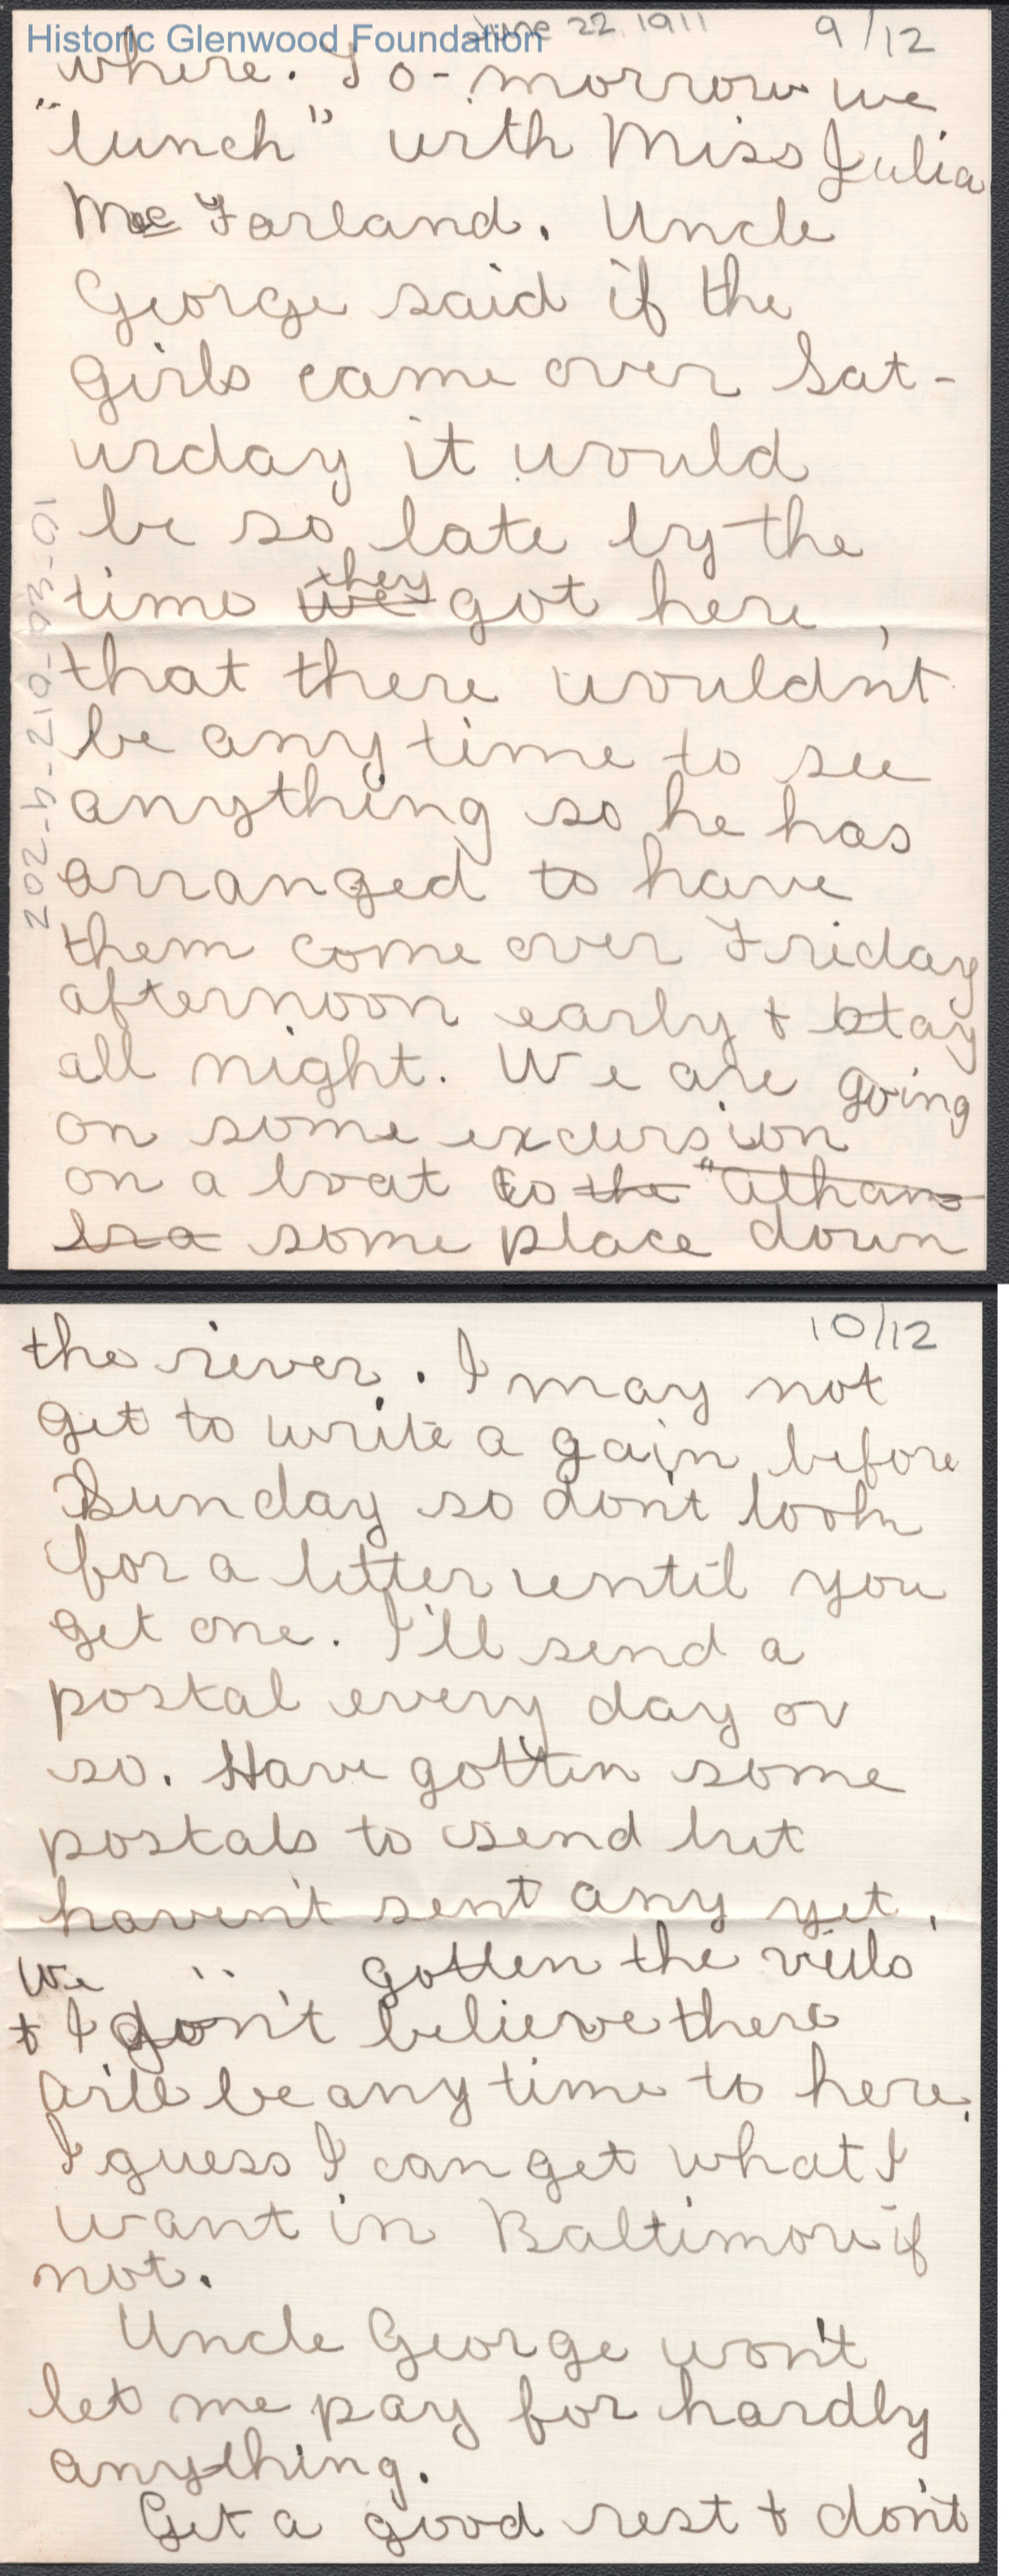 Historic Glenwood Foundation
June 22, 1911
9/12
where. To-morrow we
"lunch" with Miss Julia
Mac Farland. Uncle
George said if the
girls came over Sat-
urday it would
be so late by the
time we they got here,
that there wouldn't
be any time to see
anything so he has
arranged to have
them come over Friday
afternoon early + stay
all night. We are going
on some excursion
on a boat to the "Alham-
bra some place down
202-4-210-93-01
10/12
the river. I may not
get to write again before
Sunday so don't look
for a letter until you
get one. I'll send a
postal every day or
so. Have gotten some
postals to send but
haven't sent any yet.
We " gotten the veils
+ I don't believe there
will be any time to here.
I guess I can get what I
want in Baltimore if
not.
Uncle George won't
let me pay for hardly
anything.
Get a good rest + don't